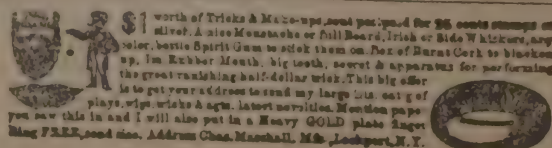 $1 worth of Tricks & Make-ups, send postpaid for 25 cents stamps or
silver. A nice Moustache or Full Beard, Irish or Side Whiskers, any
color, bottle Spirit Gum to stick them on, Box of Burnt Cork to blacken
up, Im Rubber Mouth, big teeth, secret & apparatus for performing
the great vanishing half-dollar trick. This big offer
is to get your address to send my large Ills. cat'g of
plays, wigs, tricks & agts. latest novelties. Mention paper
you saw this in and I will also put in a Heavy GOLD plate finger
Ring FREE, send size. Address Chas. Marshall, Mfr., Lockport, N.Y.